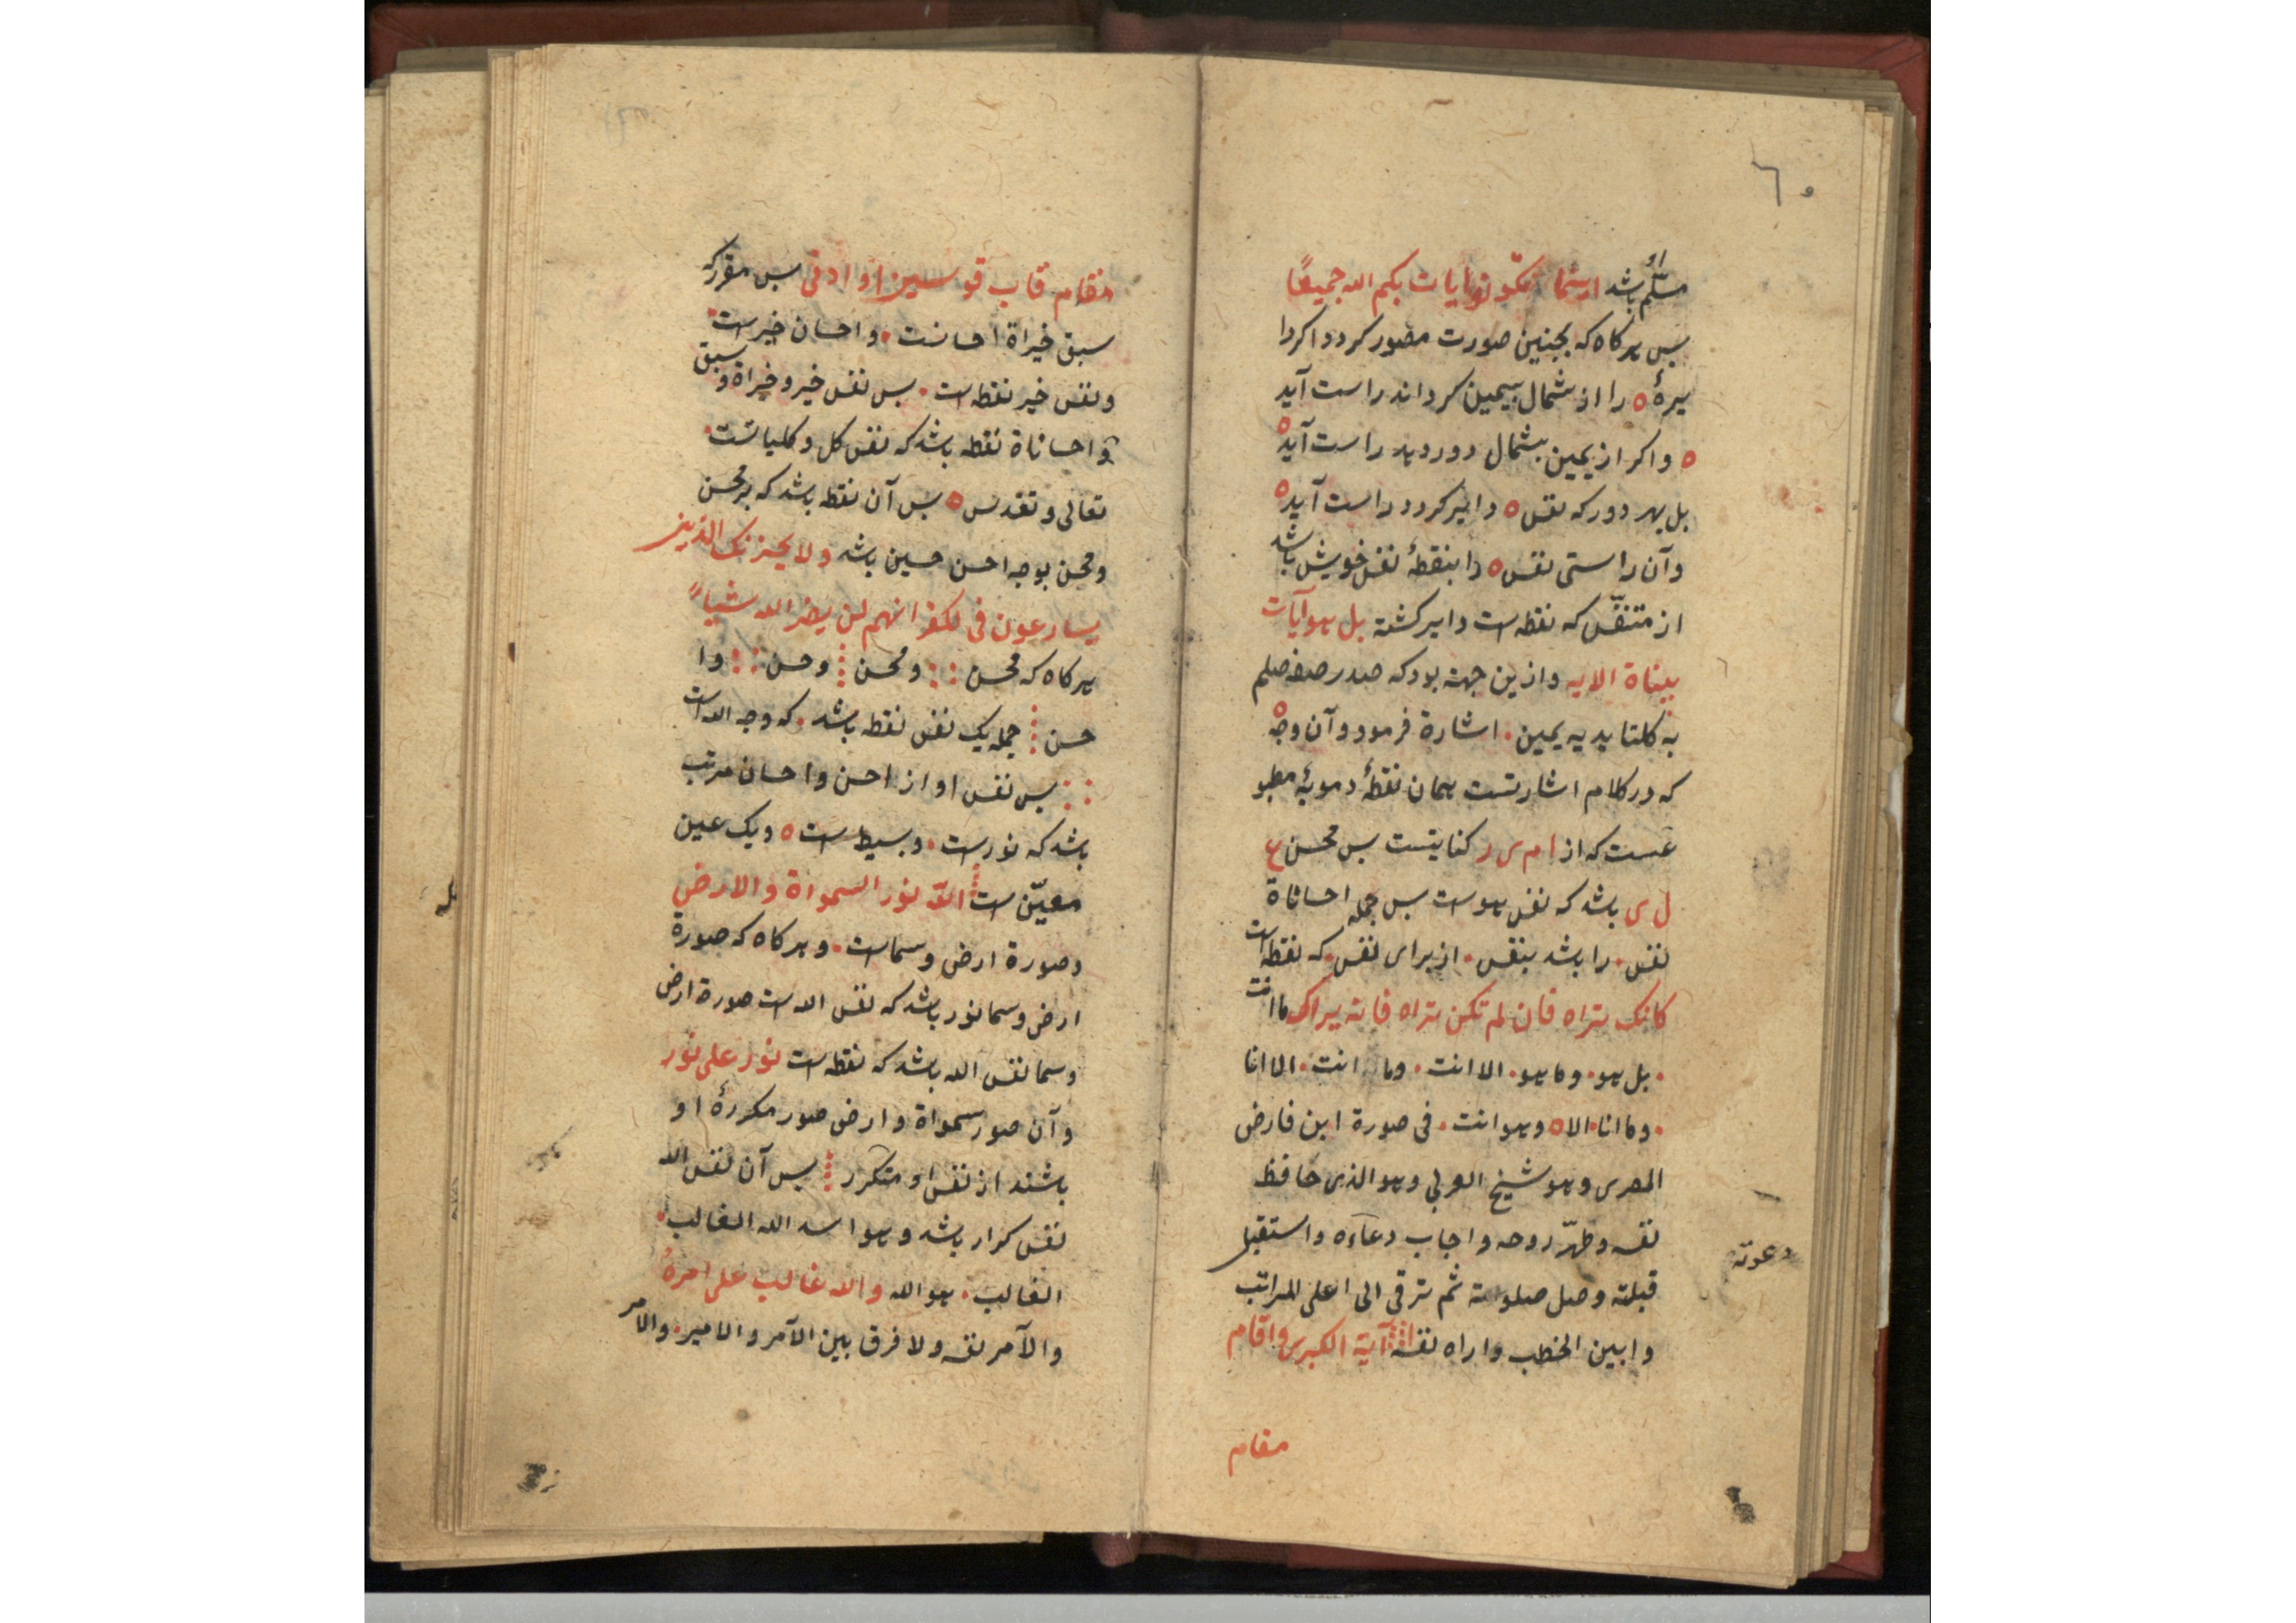 ٦٠
مسلّم باشد اینما تکونوا یات بکم الله جمیعًا
بس هرکاه که بجنین صورت مصور کردد اکر دا
یرهٔ ٥ را از شمال بیمین کردانند راست آید
٥ واکر از یمین بشمال دور دهد راست آید ٥
بل بهر دور که نفس ٥ دایر کردد راست آید ٥
وآن راستی نفس ٥ را بنقطهٔ نفس خویش باشد
از متنفّس که نقطه است دایر کشته بل هو آیات
بیناة الایه وازین جهة بود که صدر صفه صلعم
به کلتا یدیه یمین . اشارة فرمود وآن وجه ٥
که در کلام اشارتست همان نقطهٔ دمویهٔ مطبو
عست که از ام ی ر کنایتست بس محسن ع
ل ی باشد که نفس هوست بس جمله احساناة
نفس . را باشد بنفس . از برای نفس . که نقطه است
کانک تراه فان لم تکن تراه فانه یراک ما انت
. بل هو . وما هو . الا انت . وما انت . الا انا
. وما انا . الا ٥ وهو انت . فی صورة ابن فارض
المصری وهو شیخ العربی وهو الذی حافظ
نفسه وطهّر روحه واجاب دعآءه واستقبل
دعوته
قبلته وصل صلوته ثم ترقی الی اعلی المراتب
وابین الخطب واراه نفسه آیة الکبری واقام
مقام
مقام قاب قوسین او ادنی بس مقرر که
سبق خیراة احسانست . واحسان خیر است .
ونفس خیر نقطه است . بس نفس خیر وخیراة وسبق
و احساناة نقطه باشد که نفس کل وکلیاتست .
تعالی وتقدس ٥ بس آن نقطه باشد که بر محسن
ومحسن بوجه احسن حسین باشد ولا یحزنک الذین
یسارعون فی الکفر انهم لن یضر الله شیاءً
هرکاه که محسن : : ومحسن وحسن : : وا
حسن جمله یک نفس نقطه باشد . که وجه الله است
: : بس نفس او از احسن واحسان مرتب
باشد که نور است . وبسیط است ٥ ویک عین
معیّن است الله نور السمواة والارض
وصورة ارض وسماست . وهرکاه که صورة
ارض وسما نور باشد که نفس الله است صورة ارض
وسما نفس الله باشد که نقطه است نور علی نور
وآن صور سمواة وارض صور مکررهٔ او
باشند از نفس او متکرر بس آن نفس الله
نفس کرار باشد وهو اسد الله الغالب .
الغالب . هو الله والله غالب علی امره
والآمر نفسه ولا فرق بین الآمر والامیر . والامر